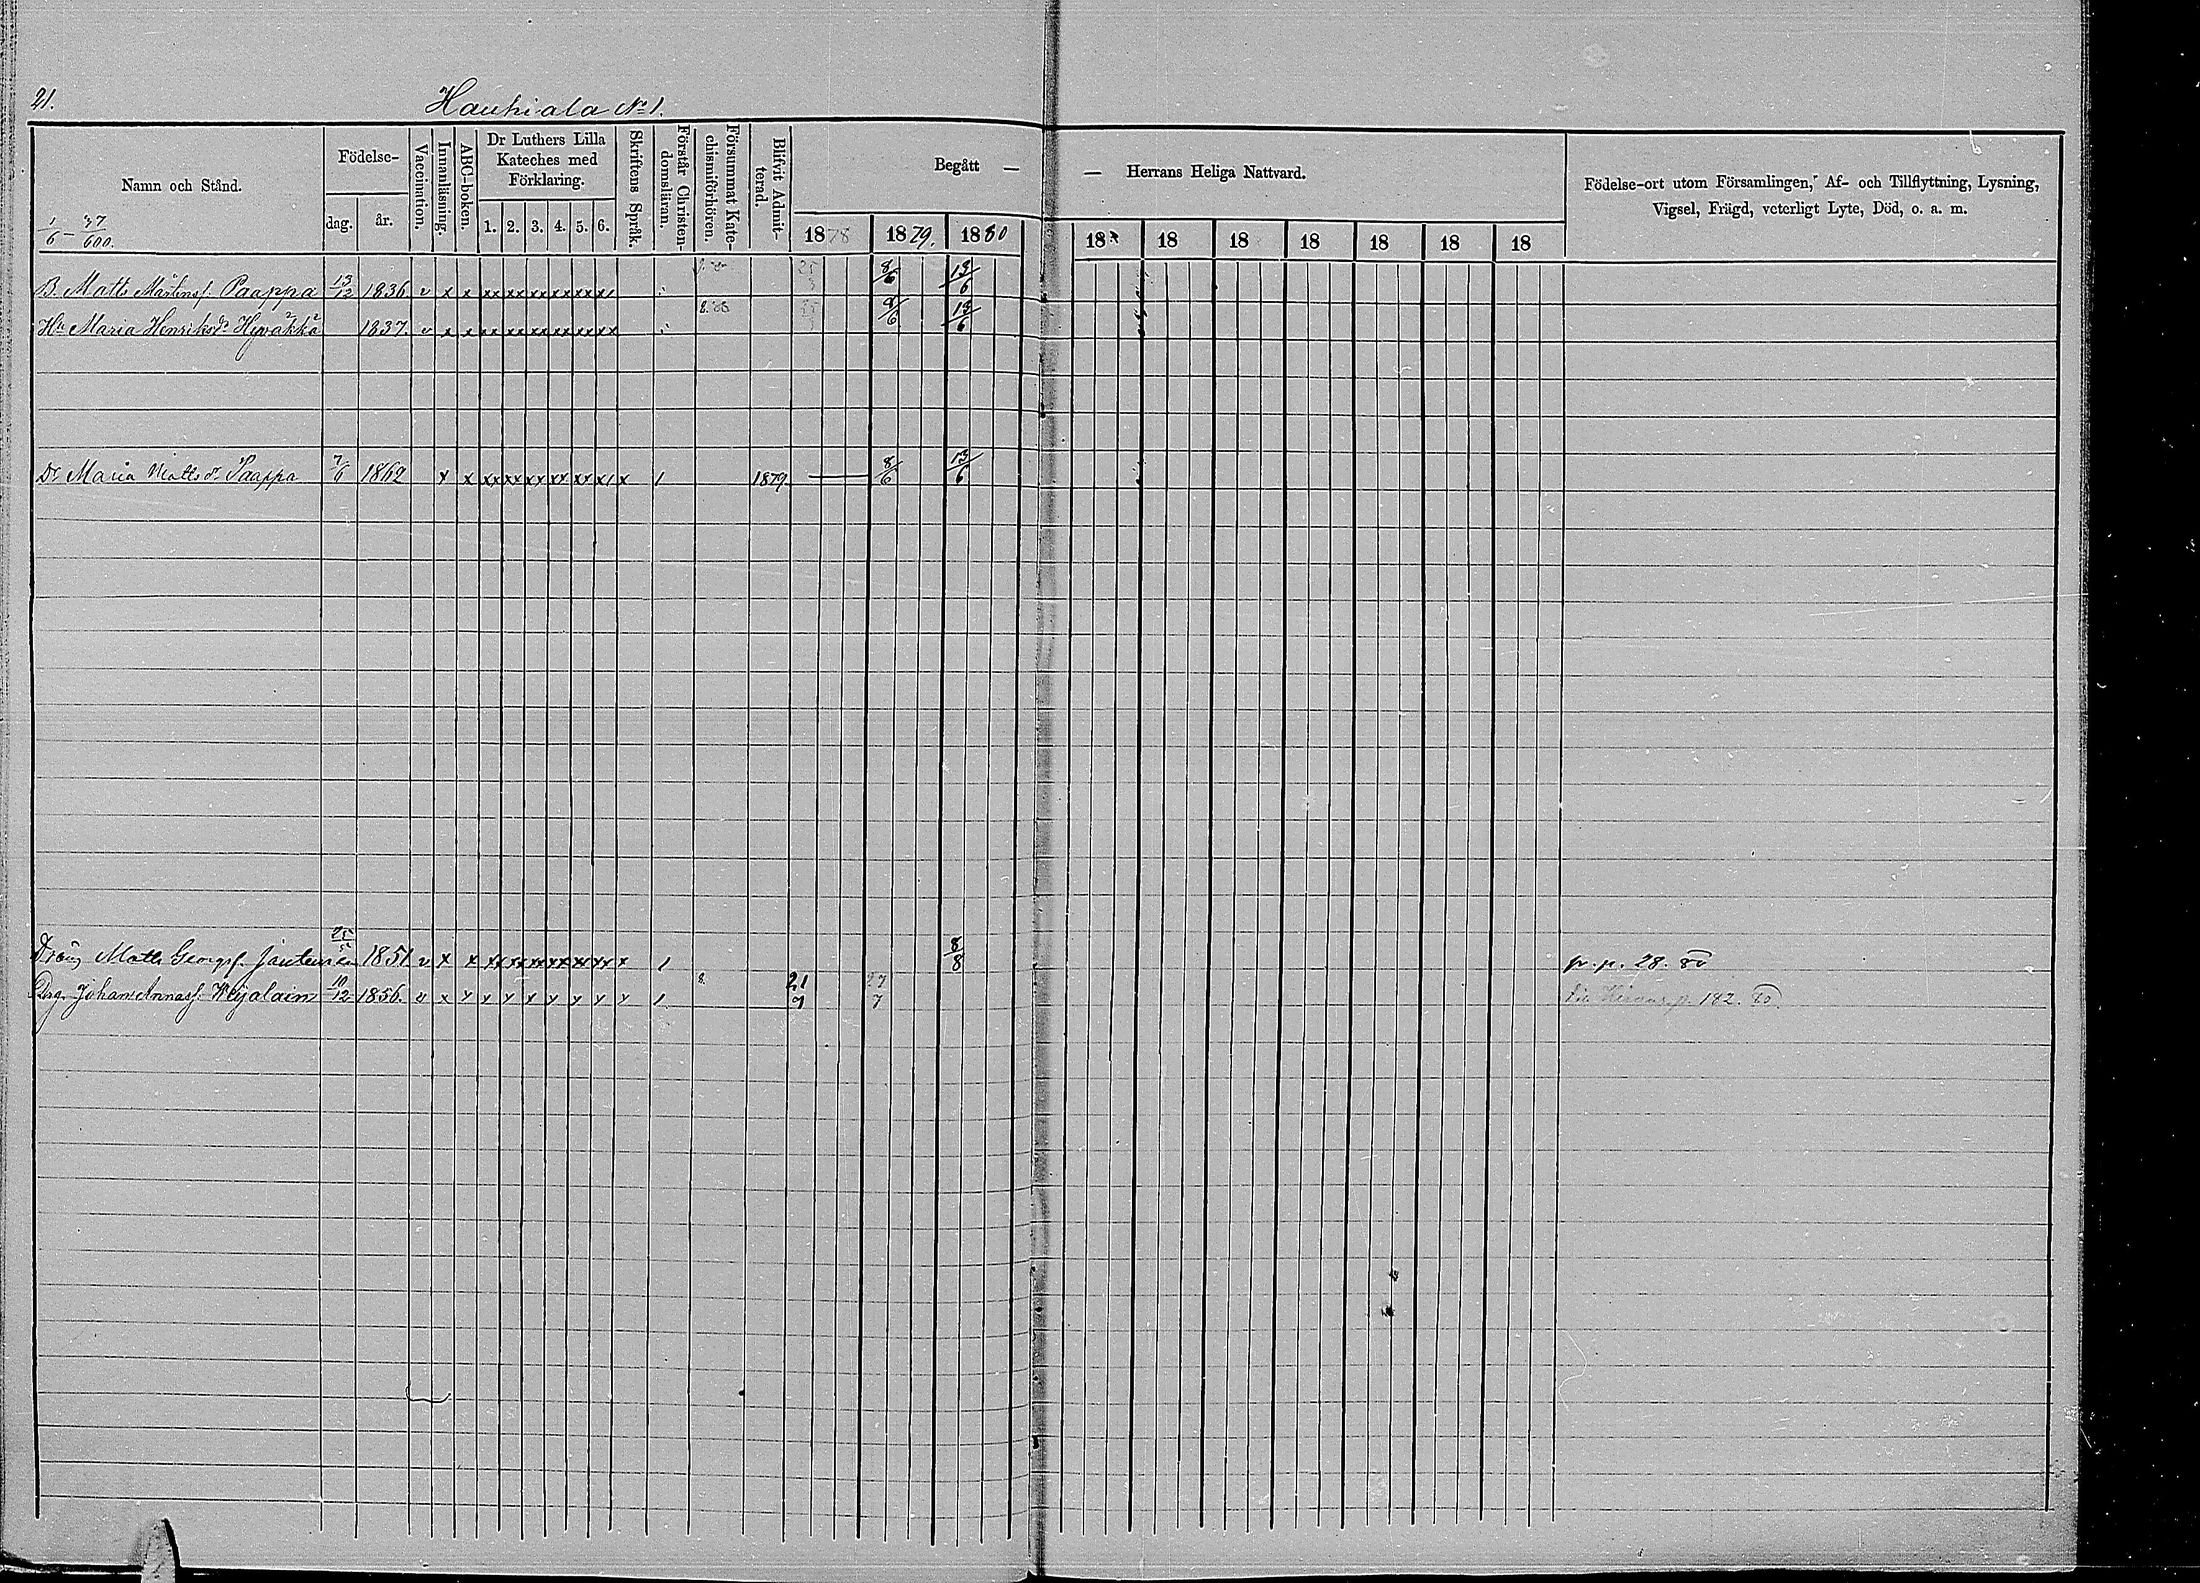 21.
Hauhiala No 1.
Namn och Stånd.
1/6 – 37/600.
Födelse-
dag.
år.
Vaccination.
Innanläsning.
ABC-boken.
Dr Luthers Lilla Kateches med Förklaring.
1. 2. 3. 4. 5. 6.
Skriftens Språk.
Förstår Christen-domsläran.
Försummat Kate-chismiförhören.
Blifvit Admit-terad.
Begått — — Herrans Heliga Nattvard.
1878 1879. 1880 18 18 18 18 18 18 18
Födelse-ort utom Församlingen, Af- och Tillflyttning, Lysning,
Vigsel, Frägd, veterligt Lyte, Död, o. a. m.
B. Matts Mårtensf. Paappa 13/12 1836 v x x xx xx xx xx xx x/ 8/6 13/6
Hu Maria Henriksdr 1837. v x x xx xx xx xx xx xx 8/6 13/6
Dr Maria Mattsdr Paappa 7/6 1862 x x xx xx xx xx xx x/ x / 1879 — 8/6 13/6
Dräng Matts Georgsf. 1851 v x x xx xx xx xx xx xx x / 8/8 p. p. 28. 80
Drg. Johan Annasf. 10/12 1856. v x x x x x x x x x / 8. 21/7 27/7 p. 182. 80.